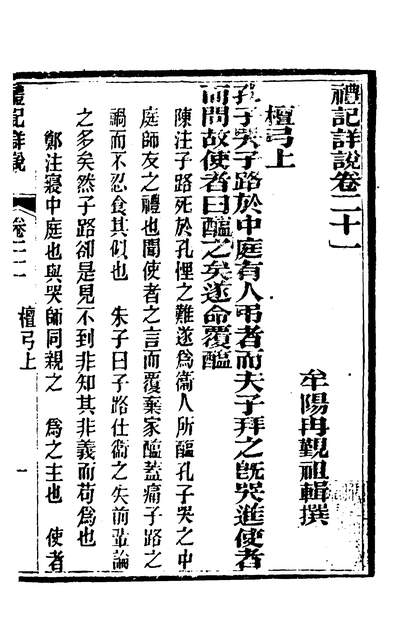 禮記詳說卷二十一
牟陽冉覲祖輯撰
檀弓上
孔子哭子路於中庭有人弔者而夫子拜之旣哭進使者
而問故使者曰醢之矣遂命覆醢
陳注子路死於孔悝之難遂爲衞人所醢孔子哭之中
庭師友之禮也聞使者之言而覆棄家醢蓋痛子路之
禍而不忍食其似也 朱子曰子路仕衞之失前輩論
之多矣然子路卻是見不到非知其非義而苟爲也
鄭注寢中庭也與哭師同親之 爲之主也 使者
禮記詳說 卷二十一 檀弓上 一